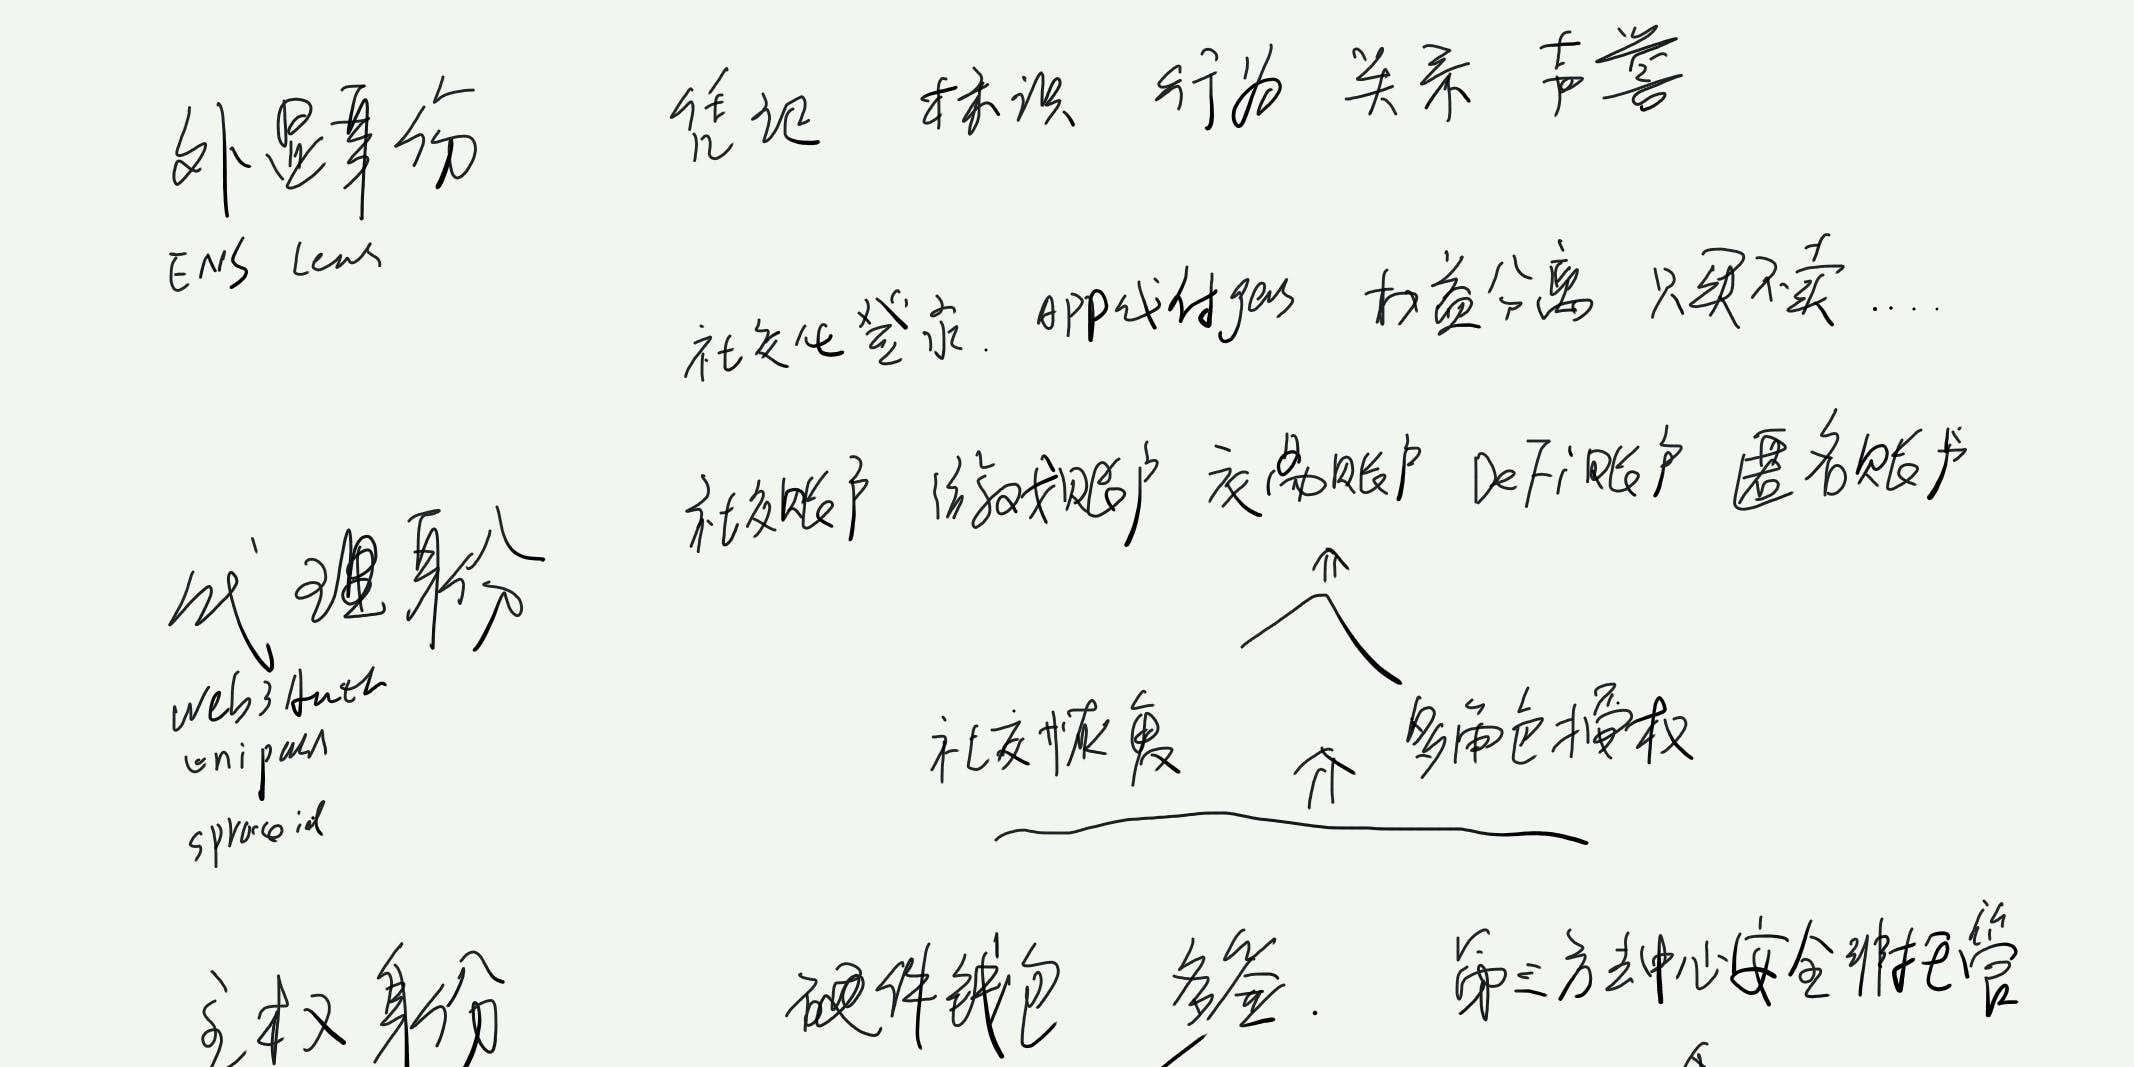 外显身份 凭记 标识 行为 关系 声誉
ENS Lens
社交化登录. APP代付gas 权益分离 只买不卖....
社交账户 游戏账户 交易账户 DeFi账户 匿名账户
代理身份
web3Auth
unipass
社交恢复 多角色授权
主权身份 硬件钱包 多签. 第三方去中心安全 托管